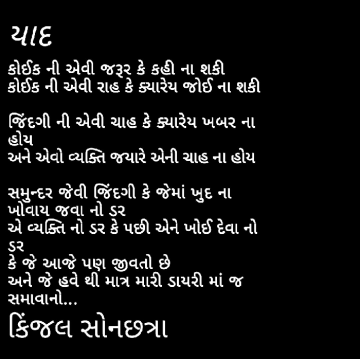 યાદ
કોઈક ની એવી જરૂર કે કહી ના શકી
કોઈક ની એવી રાહ કે ક્યારેય જોઈ ના શકી
જિંદગી ની એવી ચાહ કે ક્યારેય ખબર ના
હોય
અને એવો વ્યક્તિ જયારે એની ચાહ ના હોય
સમુન્દર જેવી જિંદગી કે જેમાં ખુદ ના
ખોવાય જવા નો ડર
એ વ્યક્તિ નો ડર કે પછી એને ખોઈ દેવા નો
ડર
કે જે આજે પણ જીવતો છે
અને જે હવે થી માત્ર મારી ડાયરી માં જ
સમાવાનો...
કિંજલ સોનછત્રા